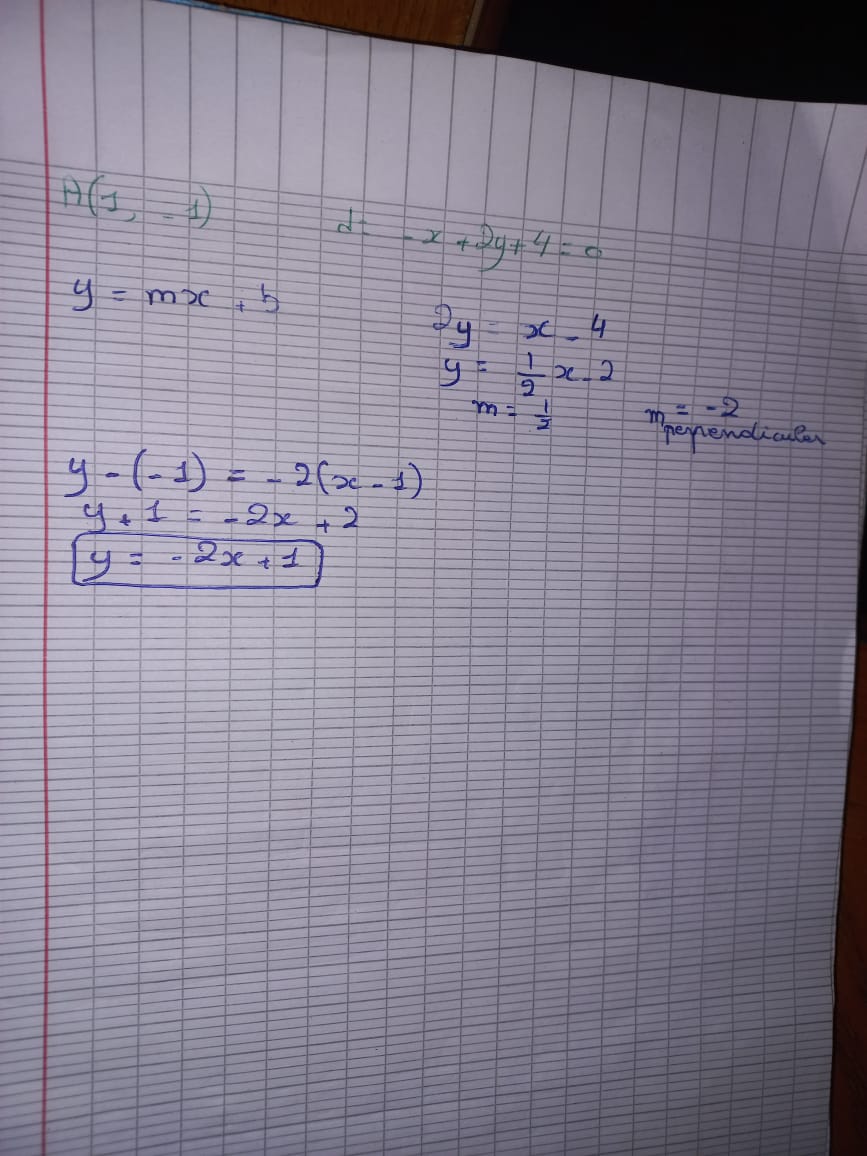 A(1, -1) d= -x + 2y + 4 = 0
y = mx + b
2y = x - 4
y = 1/2 x - 2
m = 1/2
m perpendicular = -2
y - (-1) = -2(x - 1)
y + 1 = -2x + 2
y = -2x + 1